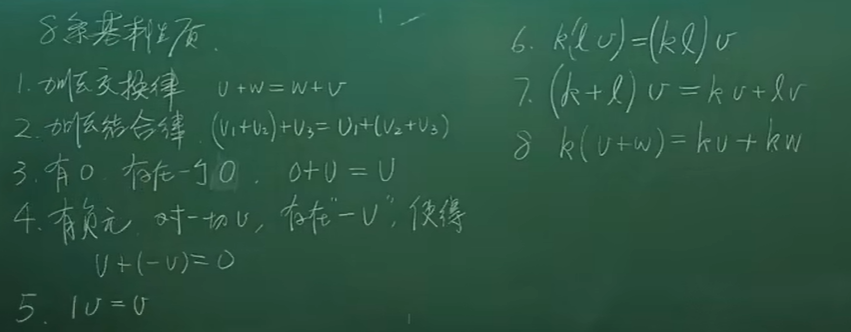 8条基本性质.
1. 加法交换律 v+w=w+v
2. 加法结合律 (v₁+v₂)+v₃=v₁+(v₂+v₃)
3. 有0. 存在一个0. 0+v=v
4. 有负元. 对一切v, 存在"-v", 使得
v+(-v)=0
5. 1v=v
6. k(lv)=(kl)v
7. (k+l)v=kv+lv
8 k(v+w)=kv+kw